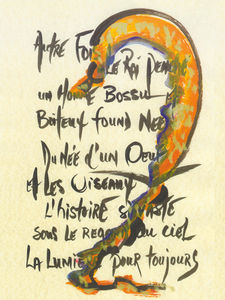 Autre Fois Le Roi Penché
un Homme Bossu
Boiteux found Née
Du Née d'un Oeuf
Et Les Oiseaux
L'histoire s
sous le regard du ciel
La Lumière pour toujours